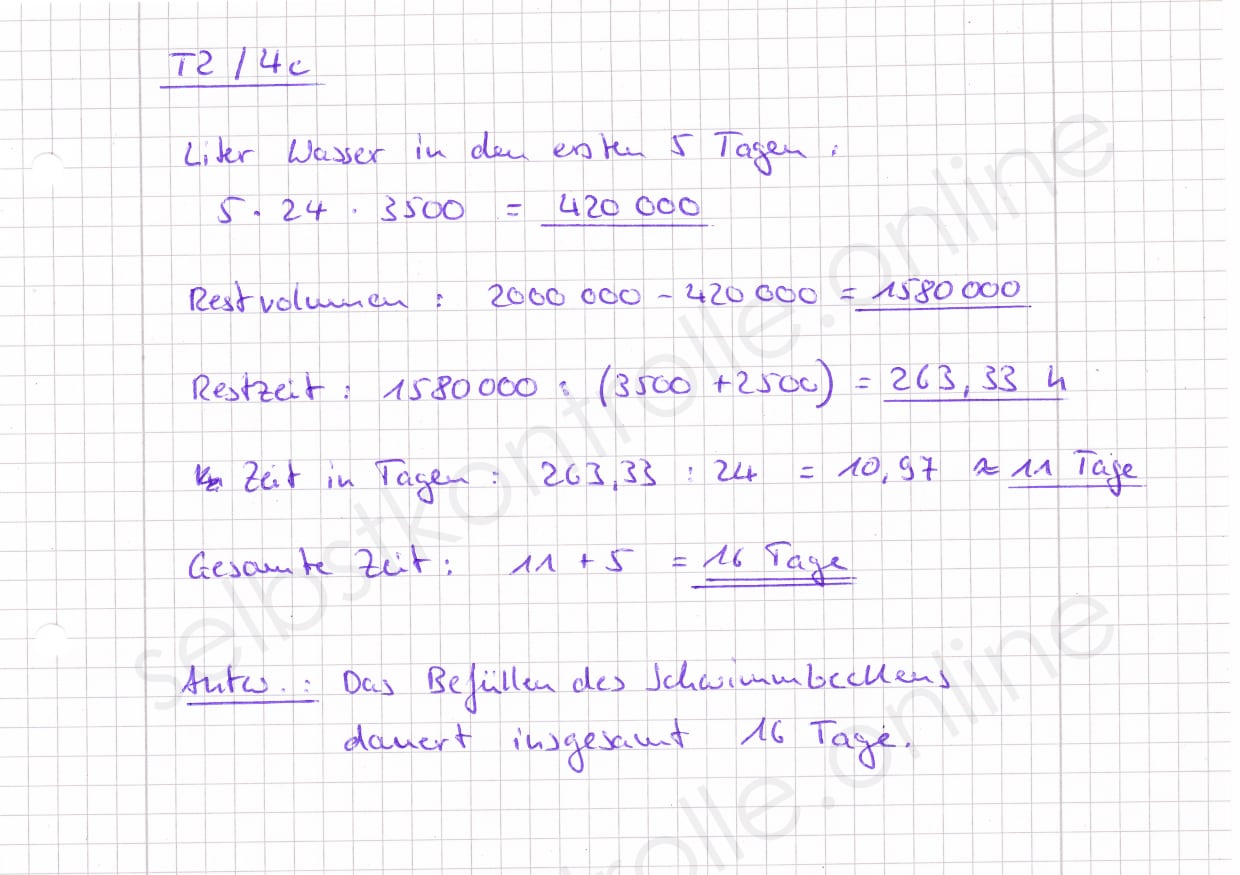 T2 / 4c
Liter Wasser in den ersten 5 Tagen :
5 · 24 · 3500 = 420 000
Restvolumen : 2000 000 - 420 000 = 1580 000
Restzeit : 1580 000 : (3500 + 2500) = 263,33 h
Zeit in Tagen : 263,33 : 24 = 10,97 ≈ 11 Tage
Gesamte Zeit : 11 + 5 = 16 Tage
Antw. : Das Befüllen des Schwimmbeckens
dauert insgesamt 16 Tage.
selbstkontrolle.online
selbstkontrolle.online